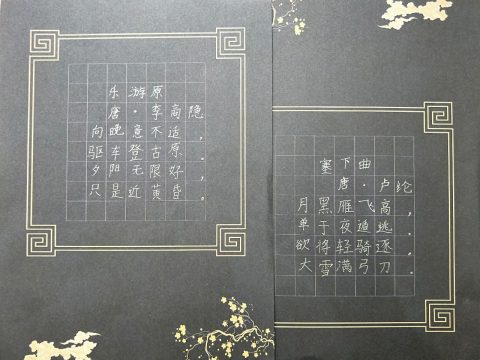 乐游原
唐·李商隐
向晚意不适，
驱车登古原。
夕阳无限好，
只是近黄昏。
塞下曲
唐·卢纶
月黑雁飞高，
单于夜遁逃。
欲将轻骑逐，
大雪满弓刀。